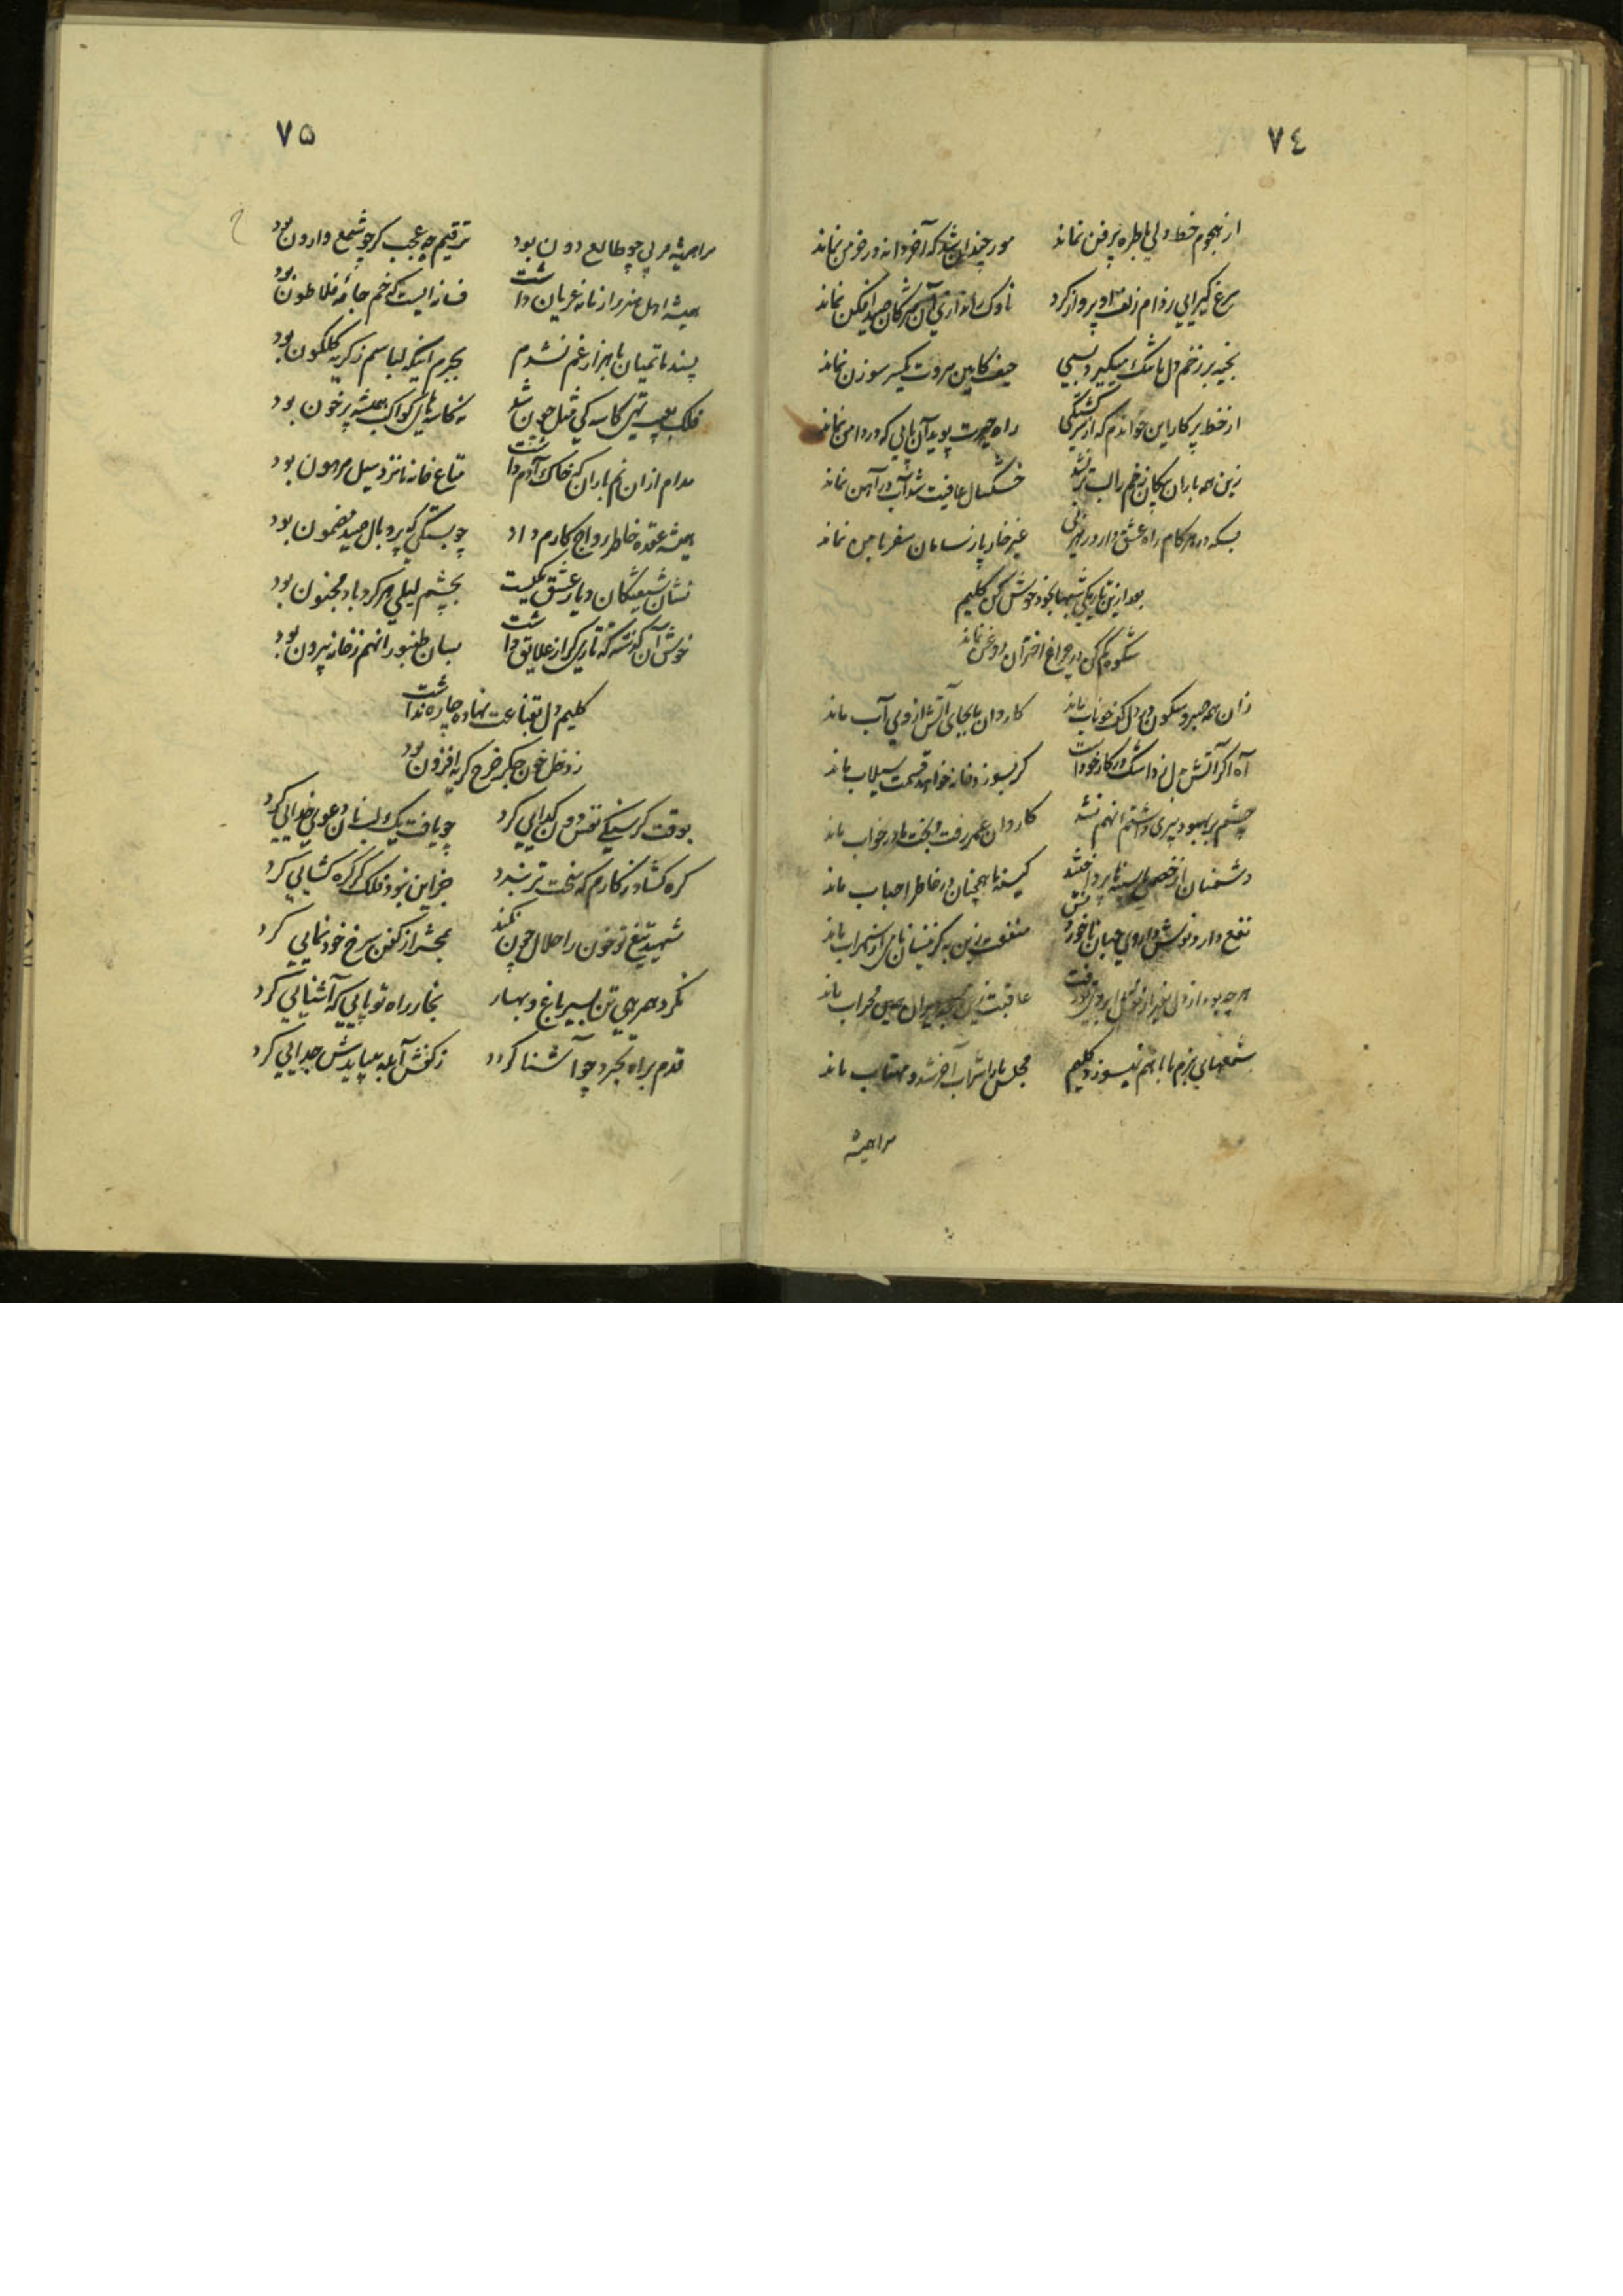 ٧٤
از هجوم خط دلی با طره پرفن نماند مور چندان شد که آخر دانه در خرمن نماند
مرغ گیرایی ز دام زلف او پرواز کرد ناوک اندازی آن مژگان صیدافکن نماند
بخیه بر زخم دل ما شک میگیرد بسی حیف کاین مروت یکسر سوزن نماند
از خط پرکار این خواندم که از سرگشتگی راه حیرت پوید آن پایی که در دامن نماند
زین همه باران پیکان زخم را لب تر نشد خشکسال عافیت شد آب در آهن نماند
بسکه در هر گام راه عشق دارد رهزنی غیر خار پا ز سامان سفر با من نماند
بعد ازین تاریکی شبها بخود خوش کن کلیم
شکوه کم کن در چراغ اختران روغن نماند
زان همه صبر و سکون در دل کف خوناب ماند کاروان ما بجای آتش از وی آب ماند
آه اگر آتش دل زد اشک در کار خود است گر نسوزد خانه خواهد قسمت سیلاب ماند
چشم بر بهبود پیری داشتم آنهم نشد کاروان عمر رفت و بخت ما در خواب ماند
دشمنان از خصمی ما سینه ها پرداختند کینه ما همچنان در خاطر احباب ماند
نفع دارد نوش داروی جهان ناخوردنش
هر چه بود از دل بغیر از نقش ابرویت رفت عاقبت زین کعبه ویران همین محراب ماند
شمعهای بزم ما با هم نمیسوزد کلیم مجلس ما را شراب آخر شد و مهتاب ماند
مرا همیشه
٧٥
مرا همیشه مربی چو طالع دون بود ترقیم چه عجب گر چو شمع وارون بود
همیشه اهل هنر را زمانه عریان داشت فسانه ایست که خم جامه فلاطون بود
پسند ماتمیان با هزار غم نشدم بجرم اینکه لباسم ز گریه گلگون بود
فلک تهی کاسه کی قبل چون شد نه کاسه های کواکب همیشه پر خون بود
مدام ازان نم باران که خاک آدم داشت متاع خانه ما نزد سیل مرهون بود
همیشه عقده خاطر رواج کارم داد چو بستگی که پر و بال صید مضمون بود
نشان شیفتگان دیار عشق یکیست بچشم لیلی هر گرد باد مجنون بود
خوش آن گذشته که تاری گر از علایق داشت بسان طنبور آنهم ز خانه بیرون بود
کلیم دل بقناعت نهاده چاره نداشت
ز دخل خون جگر خرج گریه افزون بود
بوقت گرسنگی نفس دون گدایی کرد چو یافت یک لب نان دعوی خدایی کرد
گره گشاد ز کارم که سخت تر بندد جز این نبود فلک گر گره گشایی کرد
شهید تیغ تو خون را حلال چون نکند بمحشر از کفن سرخ خودنمایی کرد
نکرد همرهی تن بسیر باغ و بهار بخار راه تو پایی که آشنایی کرد
قدم براه تجرد چو آشنا گردد ز کفش آبله بیایدش جدایی کرد